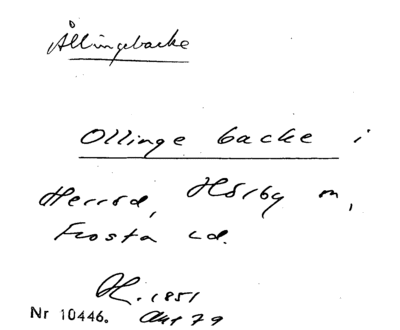 Ållingebacke
Ollinge backe i
Herröd, Hörby sn,
Frosta hd.
H. 1851
Nr 10446.